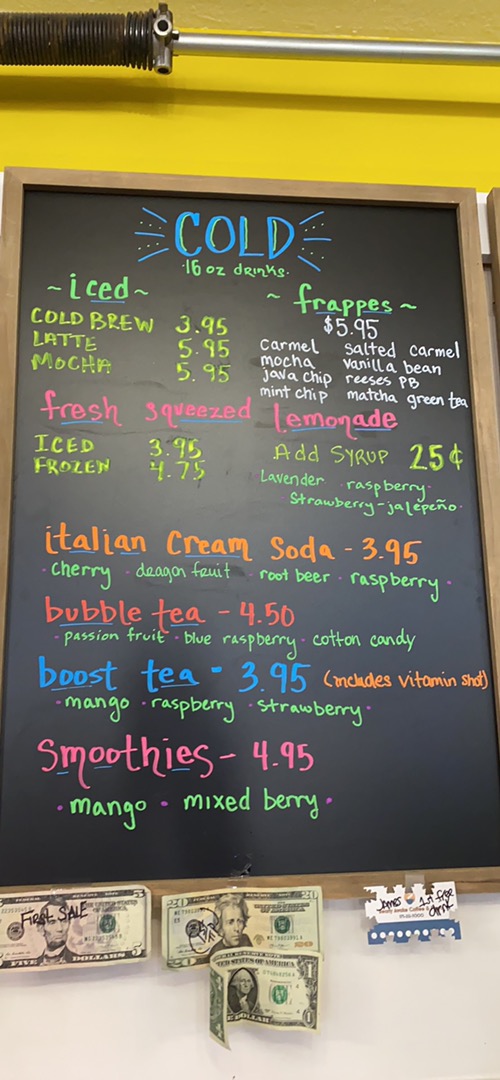 COLD
16 oz drinks.
~ iced ~
COLD BREW 3.95
LATTE 5.95
MOCHA 5.95
~ frappes ~
$5.95
carmel salted carmel
mocha vanilla bean
java chip reeses PB
mint chip matcha green tea
fresh squeezed Lemonade
ICED 3.95
FROZEN 4.75
Add SYRUP 25¢
Lavender · raspberry ·
Strawberry-jalepeño ·
italian Cream Soda - 3.95
· cherry · dragon fruit · root beer · raspberry ·
bubble tea - 4.50
· passion fruit · blue raspberry · cotton candy
boost tea - 3.95 (includes vitamin shot)
· mango · raspberry · strawberry ·
Smoothies - 4.95
· mango · mixed berry ·
FIRST SALE
FIVE DOLLARS
20
UNITED STATES OF AMERICA
1
1st free drink